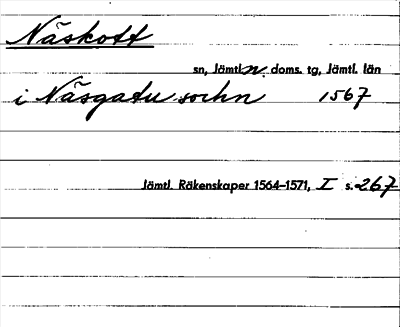 Näskott
sn, Jämtl. n. doms. tg, Jämtl. län
i Näsgatu sochn 1567
Jämtl. Räkenskaper 1564–1571, I s. 267